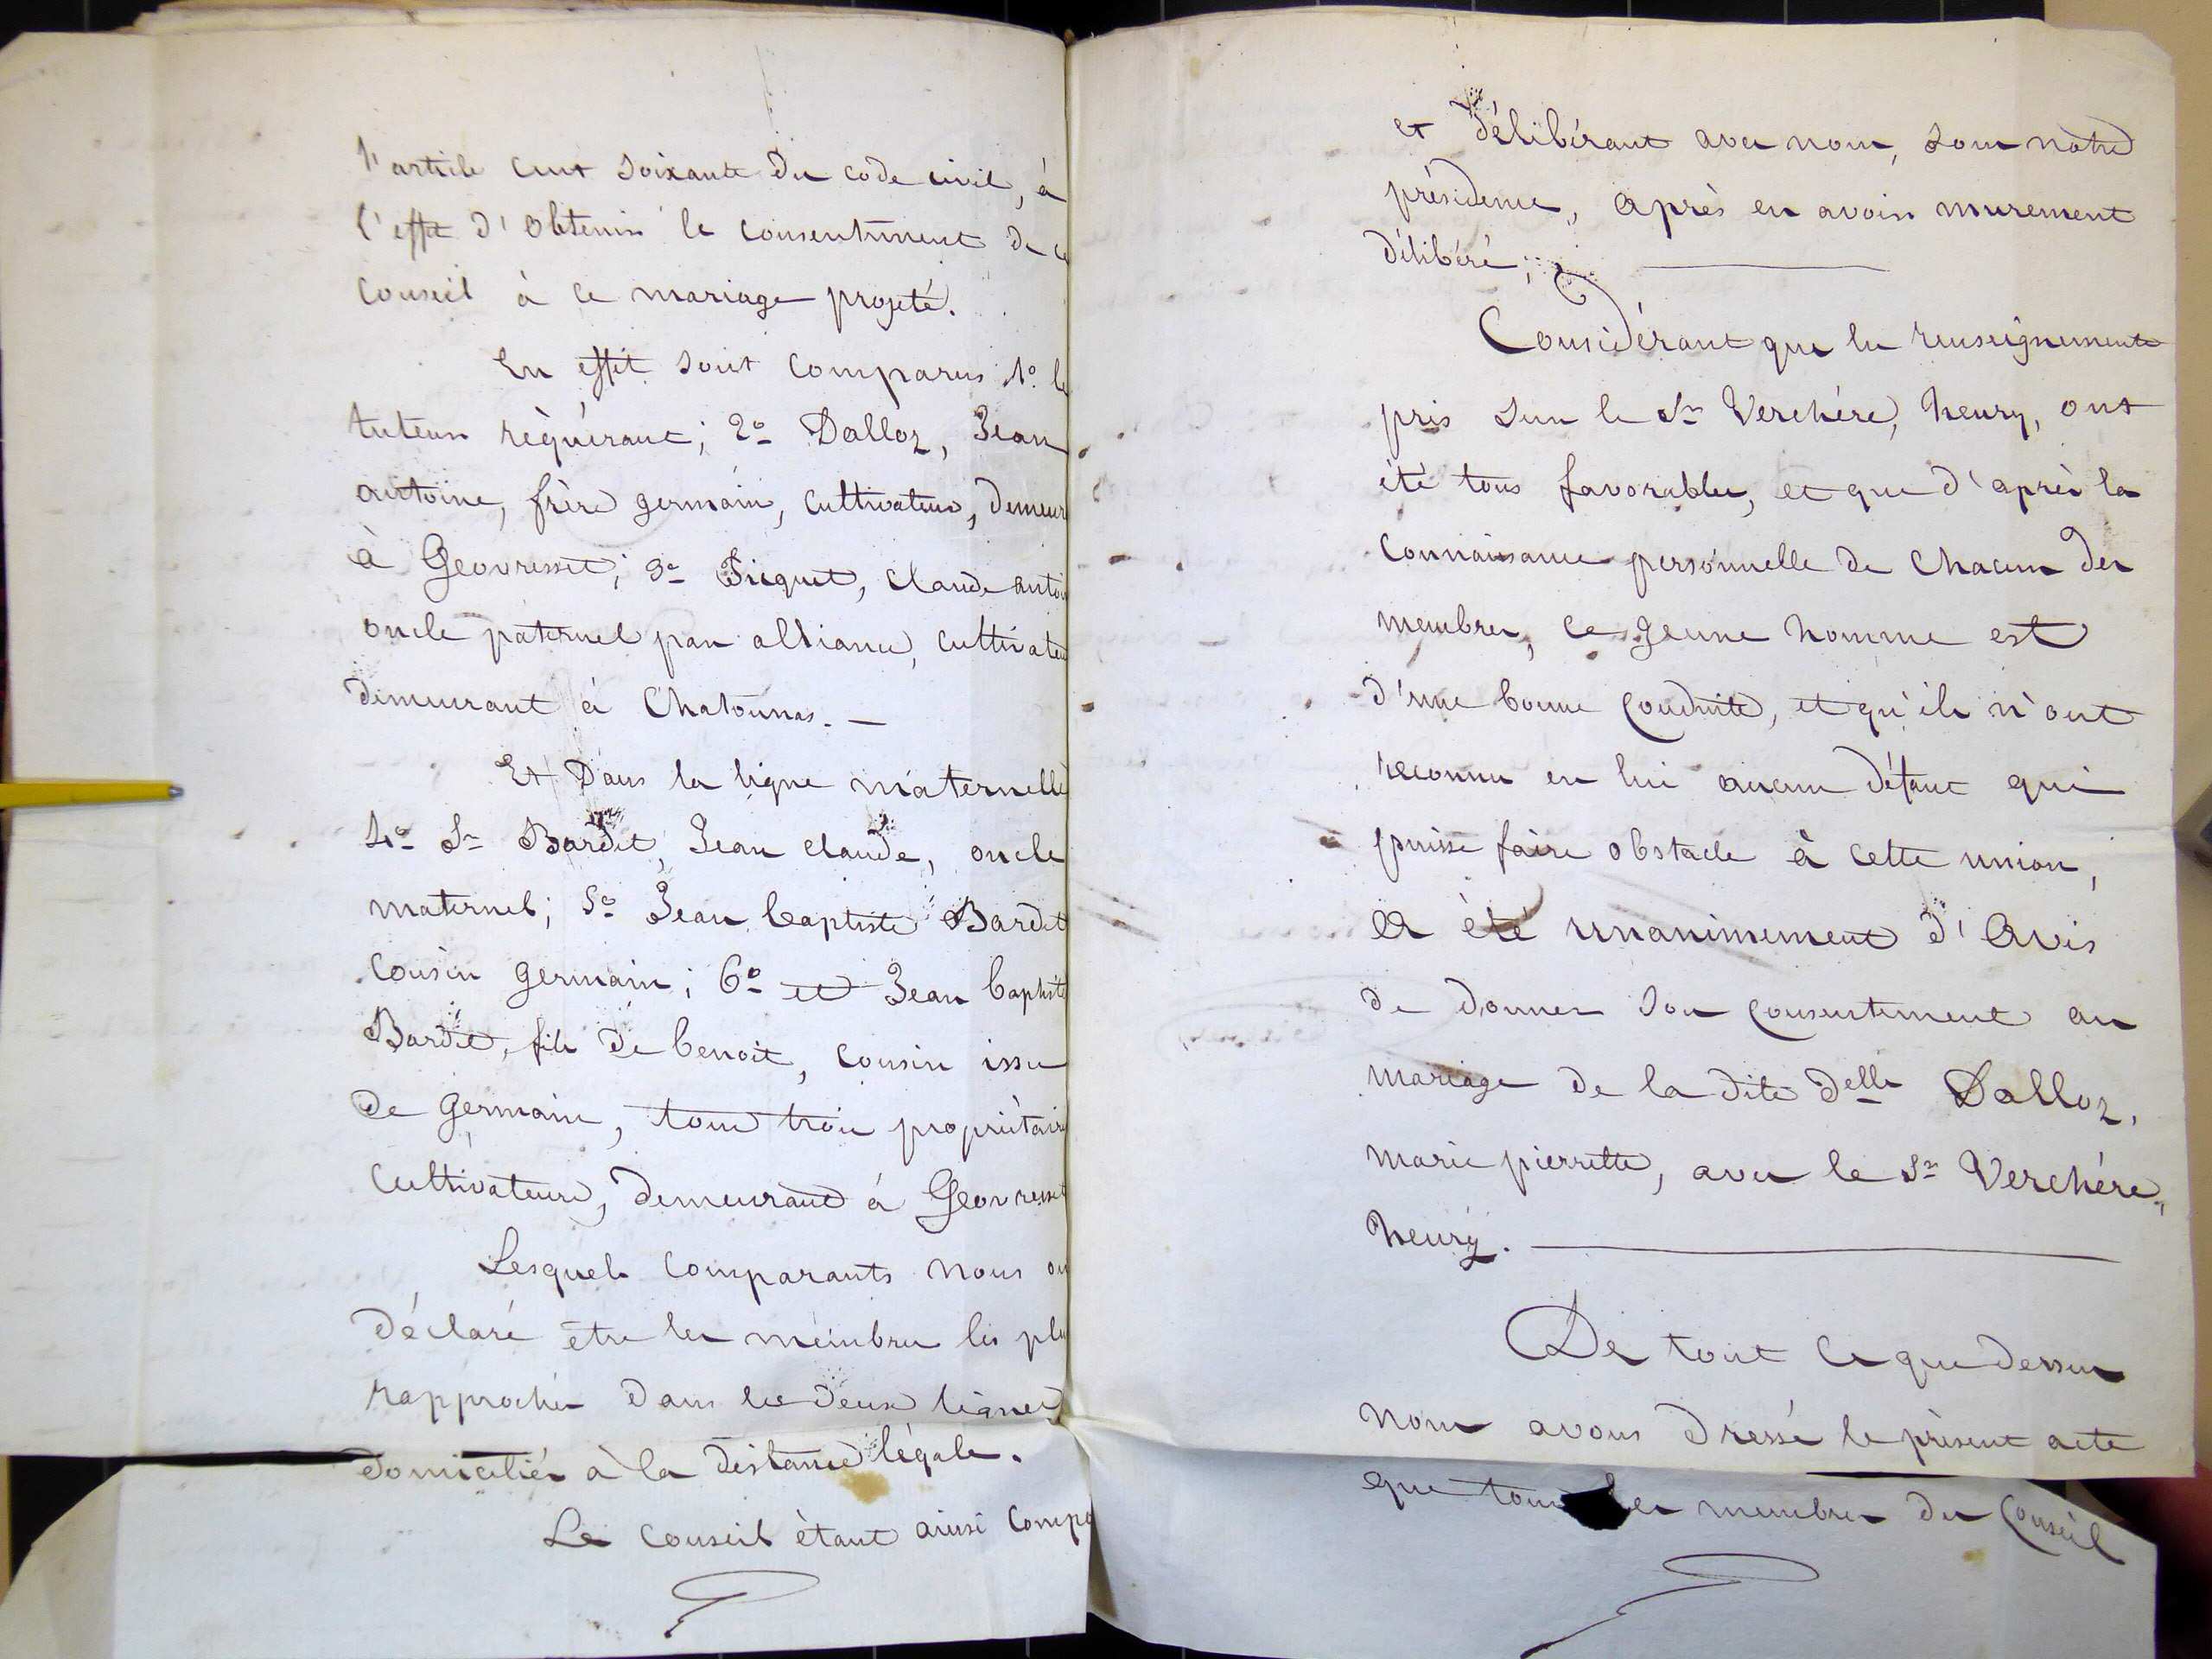 l'article cent soixante du code civil, à
l'effet d'obtenir le consentement de ce
conseil à ce mariage projeté.
En effet sont comparus 1º le
tuteur réquérant; 2º Dalloz, Jean
antoine, frère germain, cultivateur, demeur
à Geovresset; 3º Picquet, claude antoi
oncle paternel par alliance, cultivateu
demeurant à Chatonnas. —
Et Dans la ligne maternelle
4º Sr Bardet, Jean claude, oncle
maternel; 5º Jean baptiste Bardet
cousin germain; 6º et Jean baptiste
Bardet, fils de benoit, cousin issu
de germain, tous trois propriétaires
cultivateurs, demeurant à Geovresset
Lesquels comparants nous on
déclaré être les membres les plu
rapprochés dans les deux lignes
domiciliés à la distance légale.
Le conseil étant ainsi compo
et délibérant avec nous, sous notre
présidence, après en avoir murement
délibéré;
Considérant que les renseignements
pris sur le Sr Verchére, henry, ont
été tous favorables, et que d'après la
connaissance personnelle de chacun des
membres, ce jeune homme est
d'une bonne conduite, et qu'ils n'ont
reconnu en lui aucun défaut qui
puisse faire obstacle à cette union,
A été unanimement d'Avis
de donner son consentement au
mariage de la dite Delle Dalloz,
marie pierrette, avec le Sr Verchére,
henry.
De tout ce que dessus
nous avons dressé le présent acte
que tous les membres du conseil